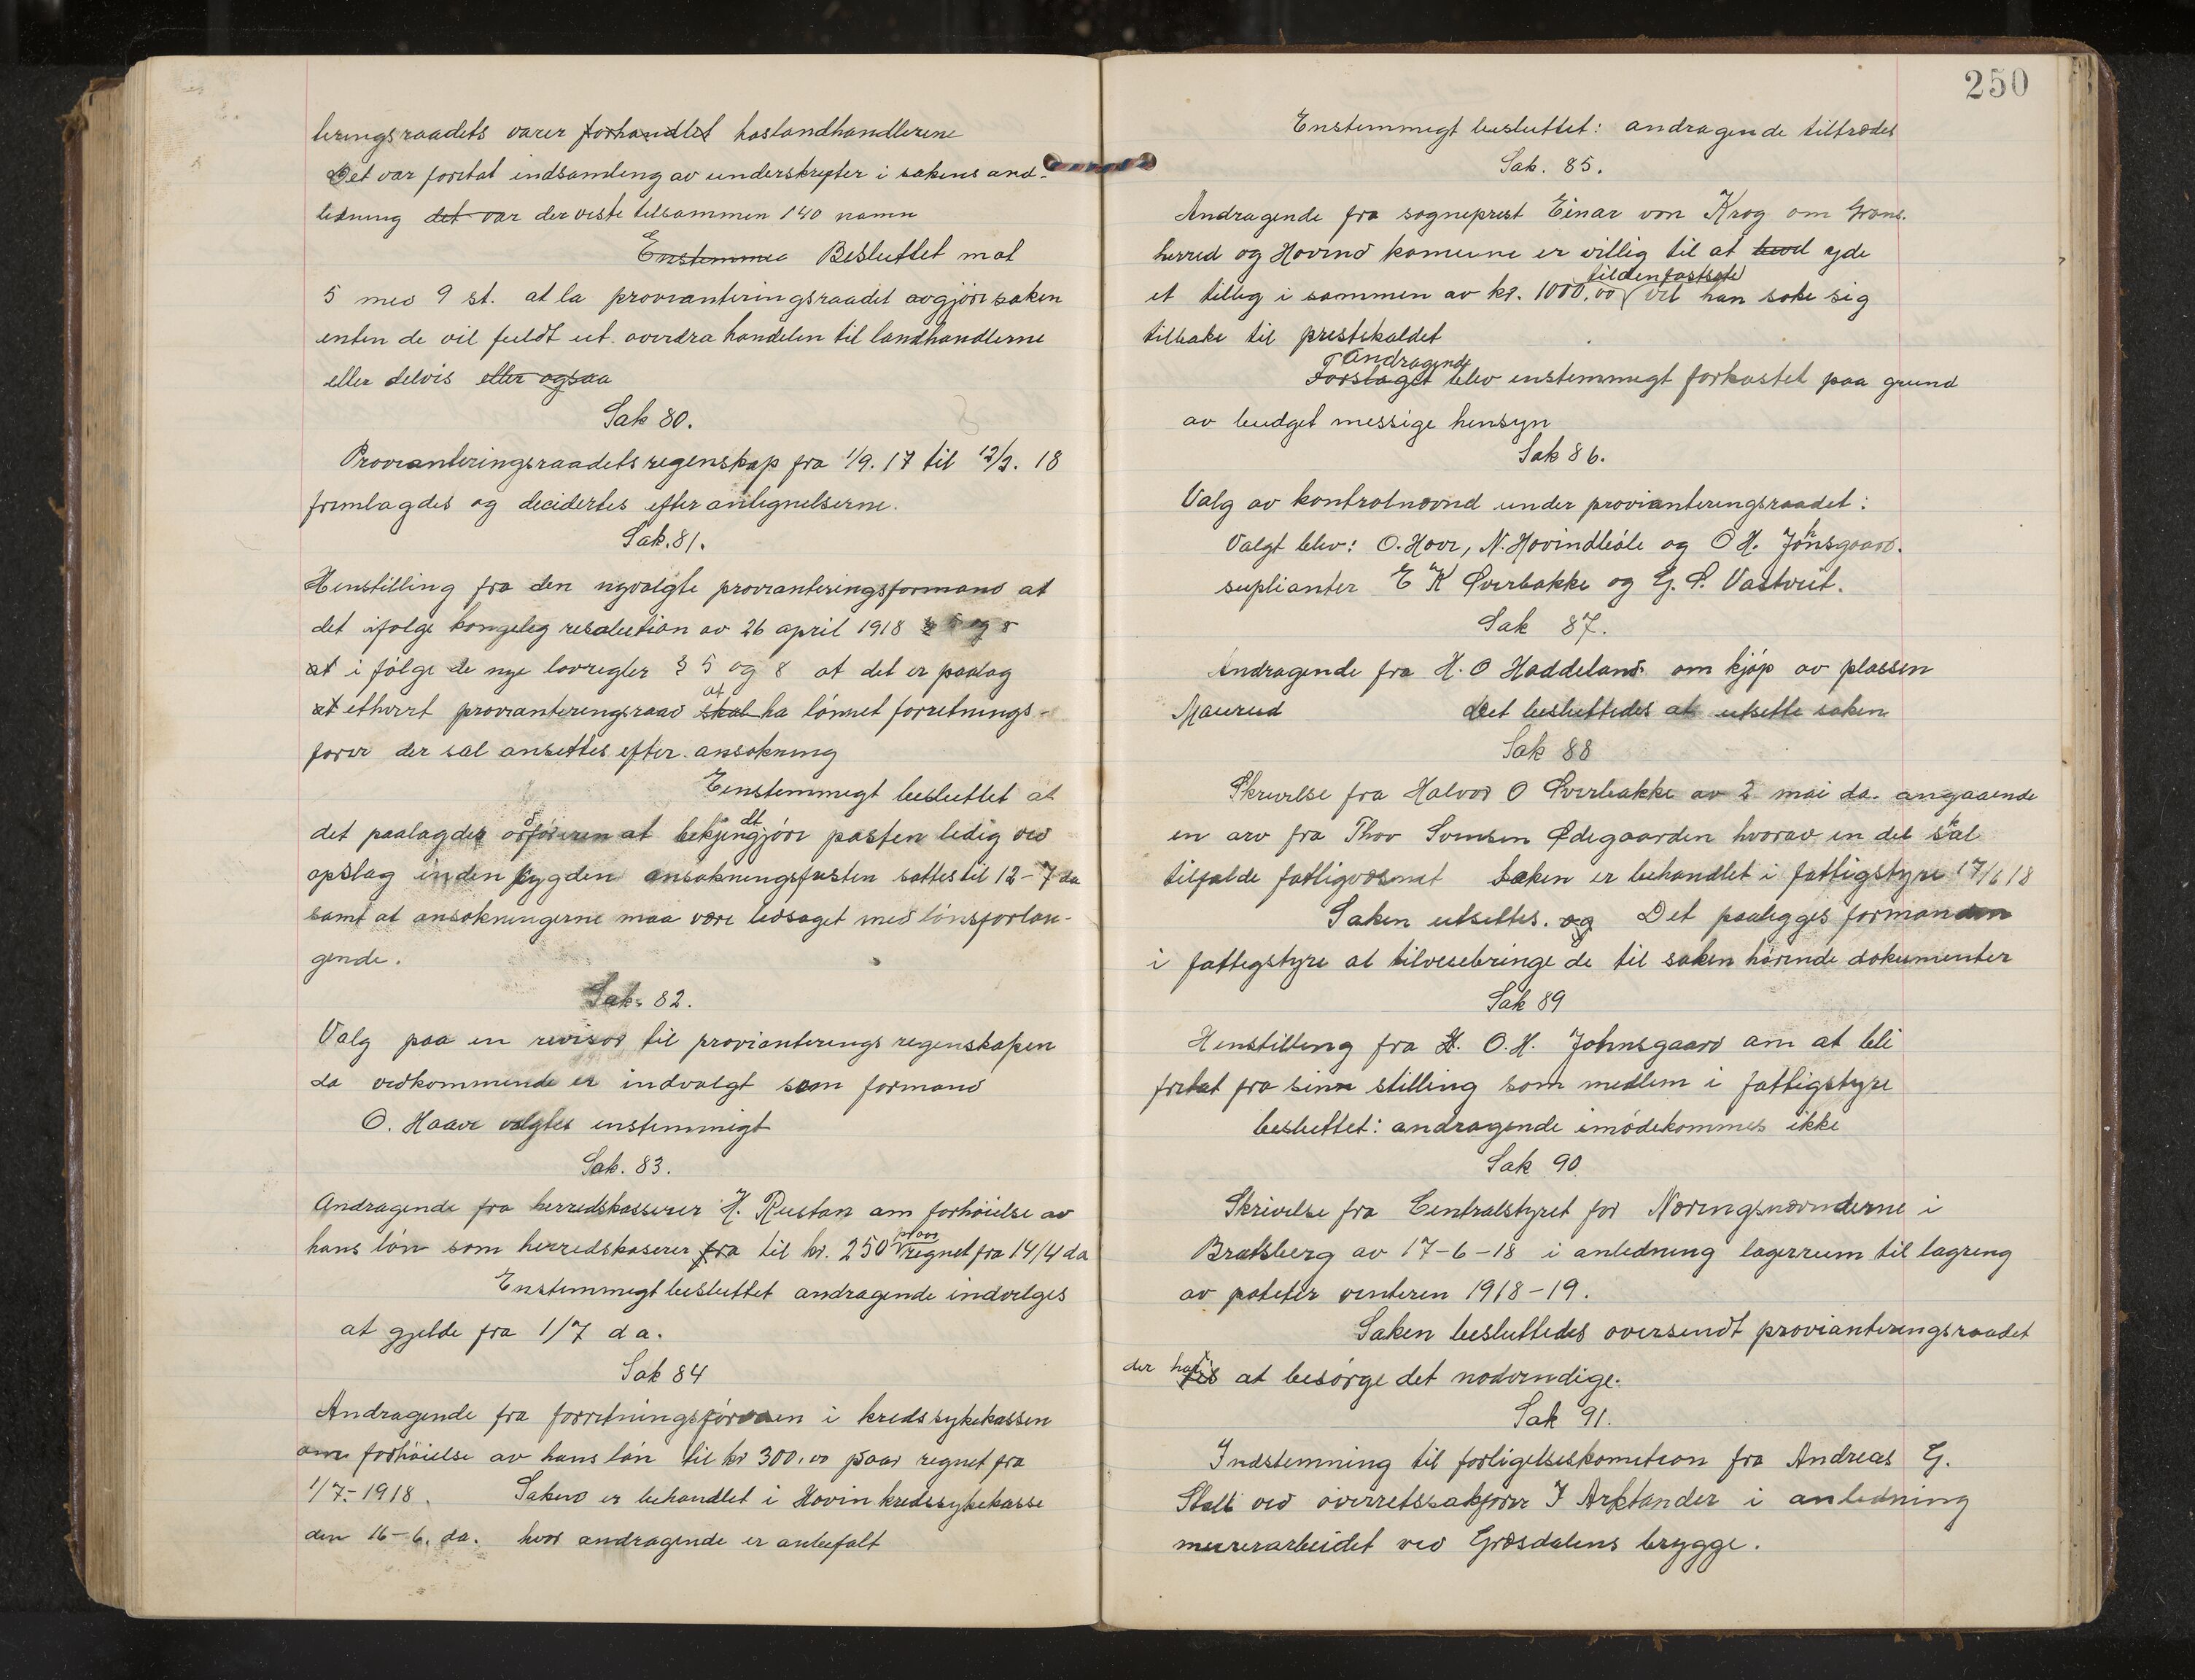 teringsraadets varer forhandlet hoslandhandlerene
Det var foretat indsamleng av underskrifter i sakens and-
ledning det var der viste tilsammen 140 namn
Enstemmi Besluttet mot
5 med 9 st. at la provianteringsraadet avgjøre saken
enten de vil fuldt ut overdra handelen til landhandlerne
eller delvis eller ogsaa
Sak 80.
Provianteringsraadets regenskap fra 1/9. 17 til 12/2. 18
fremlagdes og decidertes efter antegnelserne.
Sak. 81.
Henstilling fra den nyvalgte provianteringsformand at
det ifølge kongeleg resolution av 26 april 1918 § 5 og 8
at i følge de nye lovregler § 5 og 8 at det er paalag
at ethvert provianteringsraad skal at ha lønnet forretnings-
fører der sal ansettes efter ansøkning
Eenstemmigt besluttet at
det paalagdes ordføreren at bekjendtgjøre posten ledig ved
opslag inden bygden ansøkningsfristen sattes til 12-7 da
samt at ansøkningerne maa være ledsaget med lønsforlan-
gende.
Sak. 82.
Valg paa en revisor til provianterings regenskapen
da vedkommende er indvalgt som formand
O. Haave valgtes enstemmigt
Sak. 83.
Andragende fra herredskasserer H. Rustan om forhøielse av
hans løn som herredskaserer fra til kr. 250 praar regnet fra 14/4 da
Enstemmigt besluttet andragende indvelges
at gjelde fra 1/7 d a.
Sak 84
Andragende fra forretningsføreren i kredssykekassen
om forhøielse av hans løn til kr 300,00 paar regnet fra
1/7-1918. Saken er behandlet i Hovin kredssykekasse
den 16-6. da. hvor andragende er anbefalt
250
Enstemmigt besluttet: andragende tiltrædes
Sak. 85.
Andragende fra sogneprest Einar von Krog om Grans-
herred og Hovind komune er villig til at yde
et tilleg i sammen av kr. 1000,00 til den fastsatte vil han søke sig
tilbake til prestekaldet
Forslaget Andragende blev enstemmigt forkastet paa grund
av budget messige hensyn
Sak 86.
Valg av kontrolnævnd under provianteringsraadet:
Valgt blev: O. Hove, N. Hovindbøle og O H. Johnsgaard.
suplianter E K Øverbakke og G. S. Vastveit.
Sak 87.
Andragende fra H. O Haddeland om kjøp av plassen
Maurud Det besluttedes at utsette saken
Sak 88
Skrivelse fra Halvor O Øverbakke av 2 mai da. angaaende
en arv fra Thov Svensen Ødegaarden hvorav en del skal
tilfalde fattigvæsnet Saken er behandlet i fattigstyre 17/6 18
Saken utsettes. og Det paalegges formanden
i fattegstyre at tilveiebringe de til saken hørende dokumenter
Sak 89
Henstilling fra H. O.H. Johnsgaard om at bli
fritat fra sinn stilling som medlem i fattigstyre
besluttet: andragende imødekommes ikke
Sak 90
Skrivelse fra Centralstyret for Næringsnævnderne i
Bratsberg av 17-6-18 i anledning lagerrum til lagreng
av poteter vinteren 1918-19.
Saken besluttedes oversendt provianteringsraadet
der har at besørge det nødvendige.
Sak 91.
Indstemning til forligelseskomition fra Andreas G.
Stall ved overretssakfører J Arktander i anledning
murerarbeidet ved Græsdalens brygge.